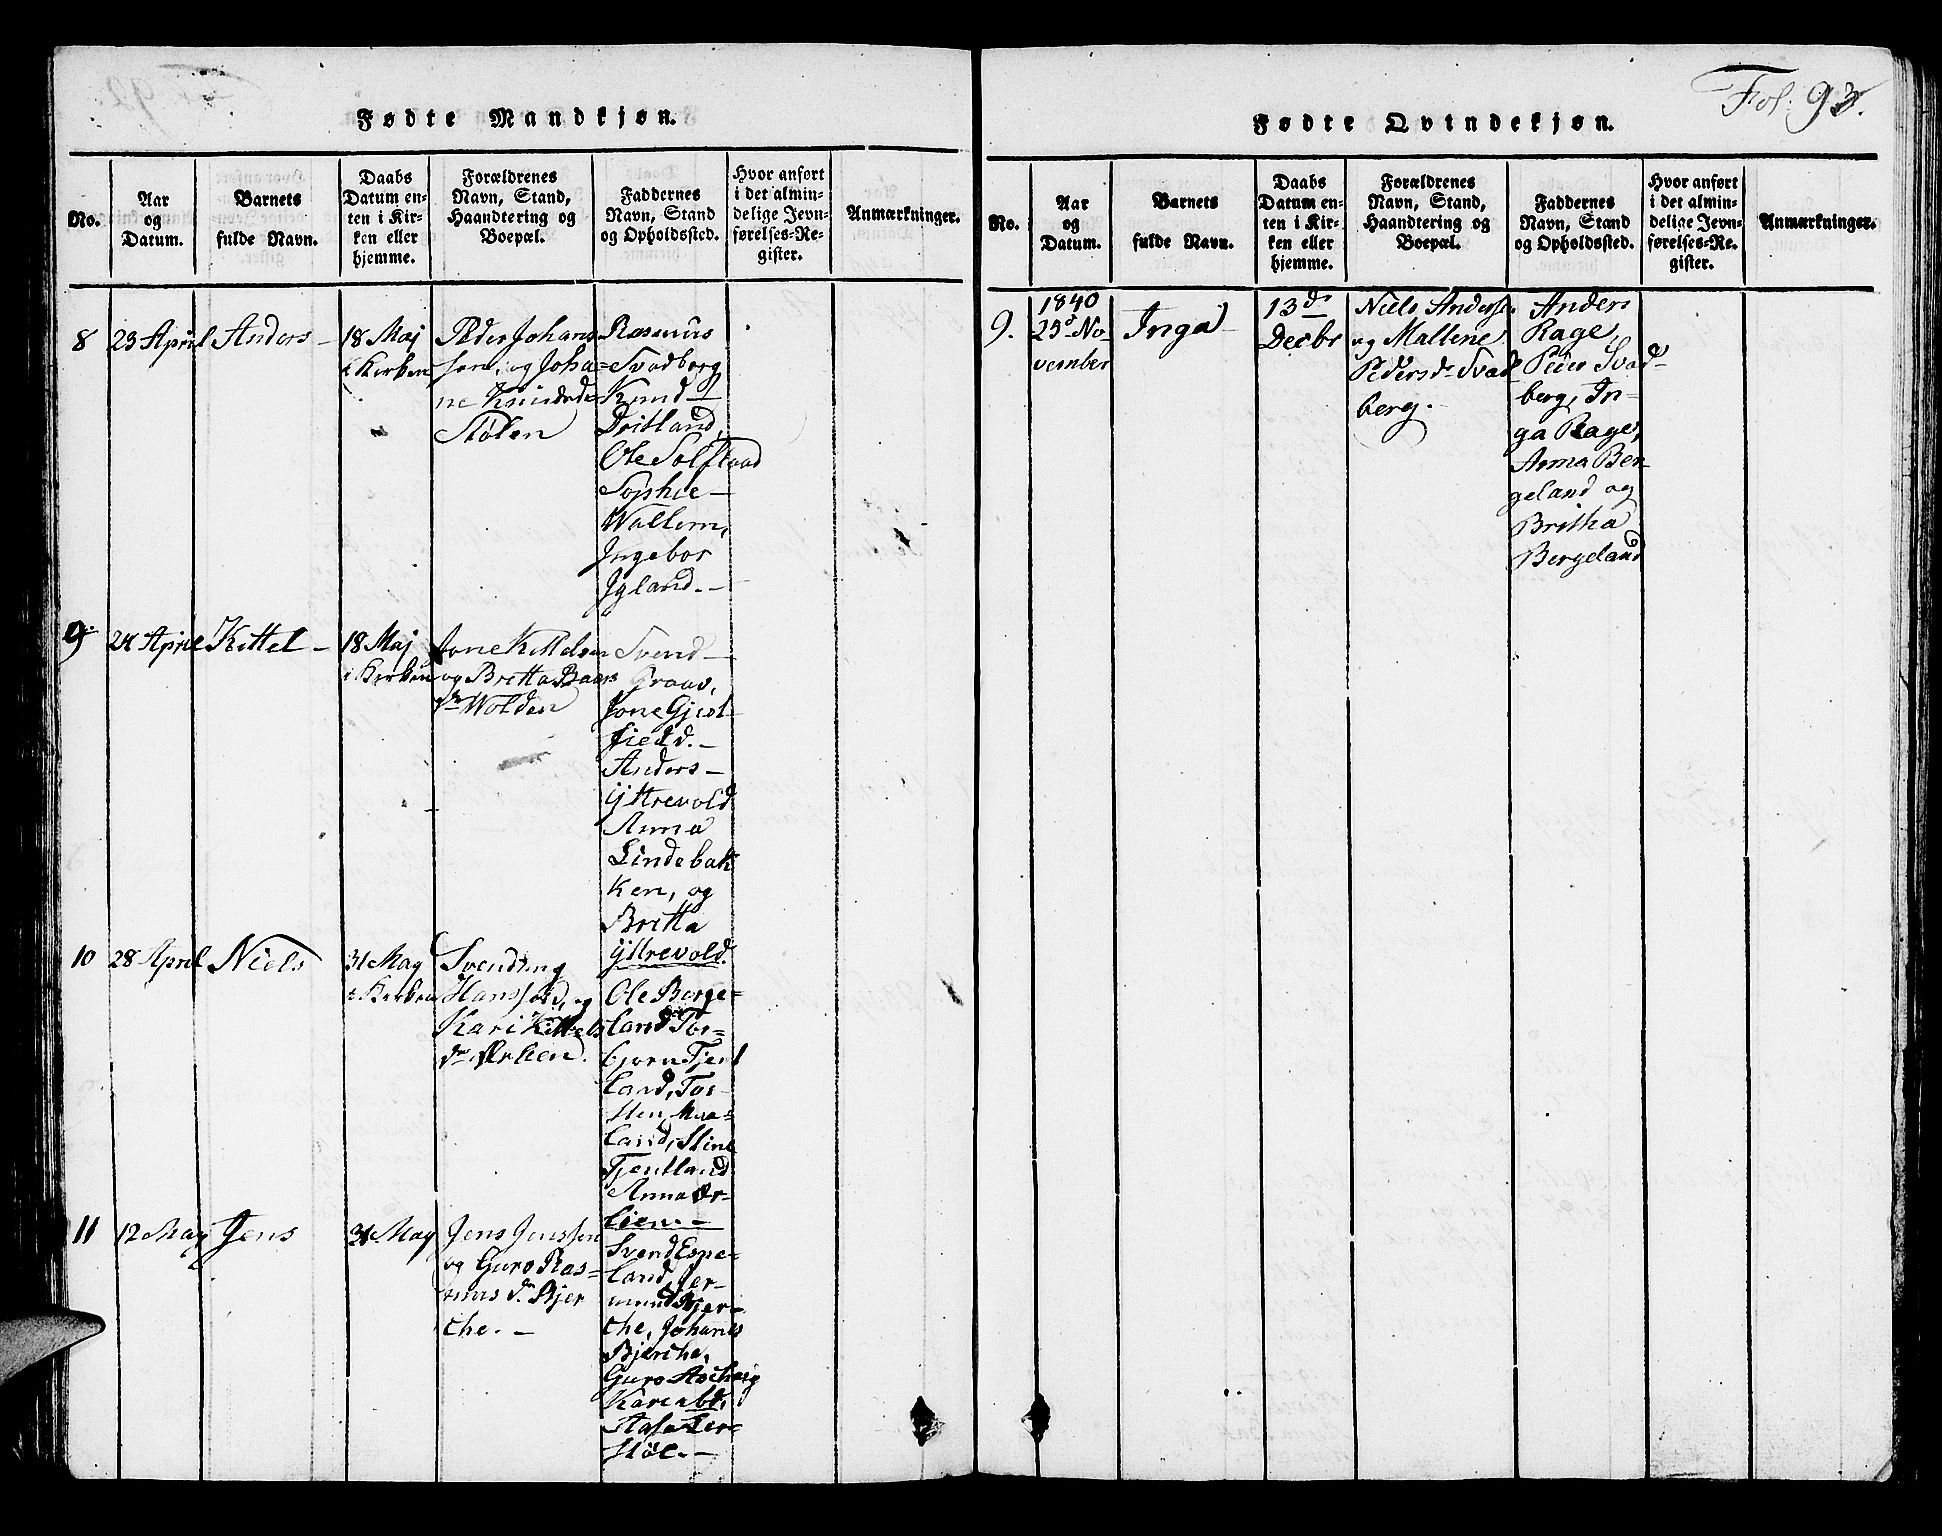 Fødte Mandkjøn.
No.
Aar
og
Datum.
Barnets
fulde Navn.
Daabs
Datum en-
ten i Kir-
ken eller
hjemme.
Forældrenes
Navn, Stand,
Haandtering og
Boepæl.
Faddernes
Navn, Stand
og Opholdssted.
Hvor anført
i det almin-
delige Jevn-
førelses-Re-
gister.
Anmærkninger.
8
23 April
Anders
18 Maj
i Kirken
Peder Johans
sen, og Joha=
ne Knudsd=
Stølen
Rasmus
Svadberg
Knud
Dritland,
Ole Solstaad
Sophie
Wallem,
Ingebor
Igland.
9.
24 April
Kittel
18 Maj
i Kirken
Jone Kittelsen
og Britta Baars
dr Wolden
Svend
Graav,
Jone Gjest
field.
Anders
Ytrevold
Anna
Lindebak
ken, og
Britta
Ytrevold.
10
28 April
Niels
31 May
i Kirken
Svendung
Hansson, og
Kari Kittels
dr Ørlien.
Ole Berge=
land Tor=
bjørn Tjent
land, Tor-
sten Maa=
land, Stine
Tjentland
Anna Ør-
lien.
11
12 May
Jens
31 May
Jens Jenssen
og Guro Ras=
mus dr Bjer
che.
Svend Espe=
land, Jer-
mund Bjer-
che, Johanes
Bjerche,
Guro
Karen ibd,
Aasa
støl.
Fol: 93.
Fødte Qvindekjøn.
No.
Aar
og
Datum.
Barnets
fulde Navn.
Daabs
Datum en-
ten i Kir-
ken eller
hjemme.
Forældrenes
Navn, Stand,
Haandtering og
Boepæl.
Faddernes
Navn, Stand
og Opholdssted.
Hvor anført
i det almin-
delige Jevn-
førelses-Re-
gister.
Anmærkninger.
9.
1840
23d No-
vember
Inga
13de
Decbr
Niels Anders.
og Mallene
Pedersdr Svad
berg.
Anders
Rage,
Peder Svad-
berg, In-
ga Rage,
Anna Ber-
geland og
Britha
Bergeland